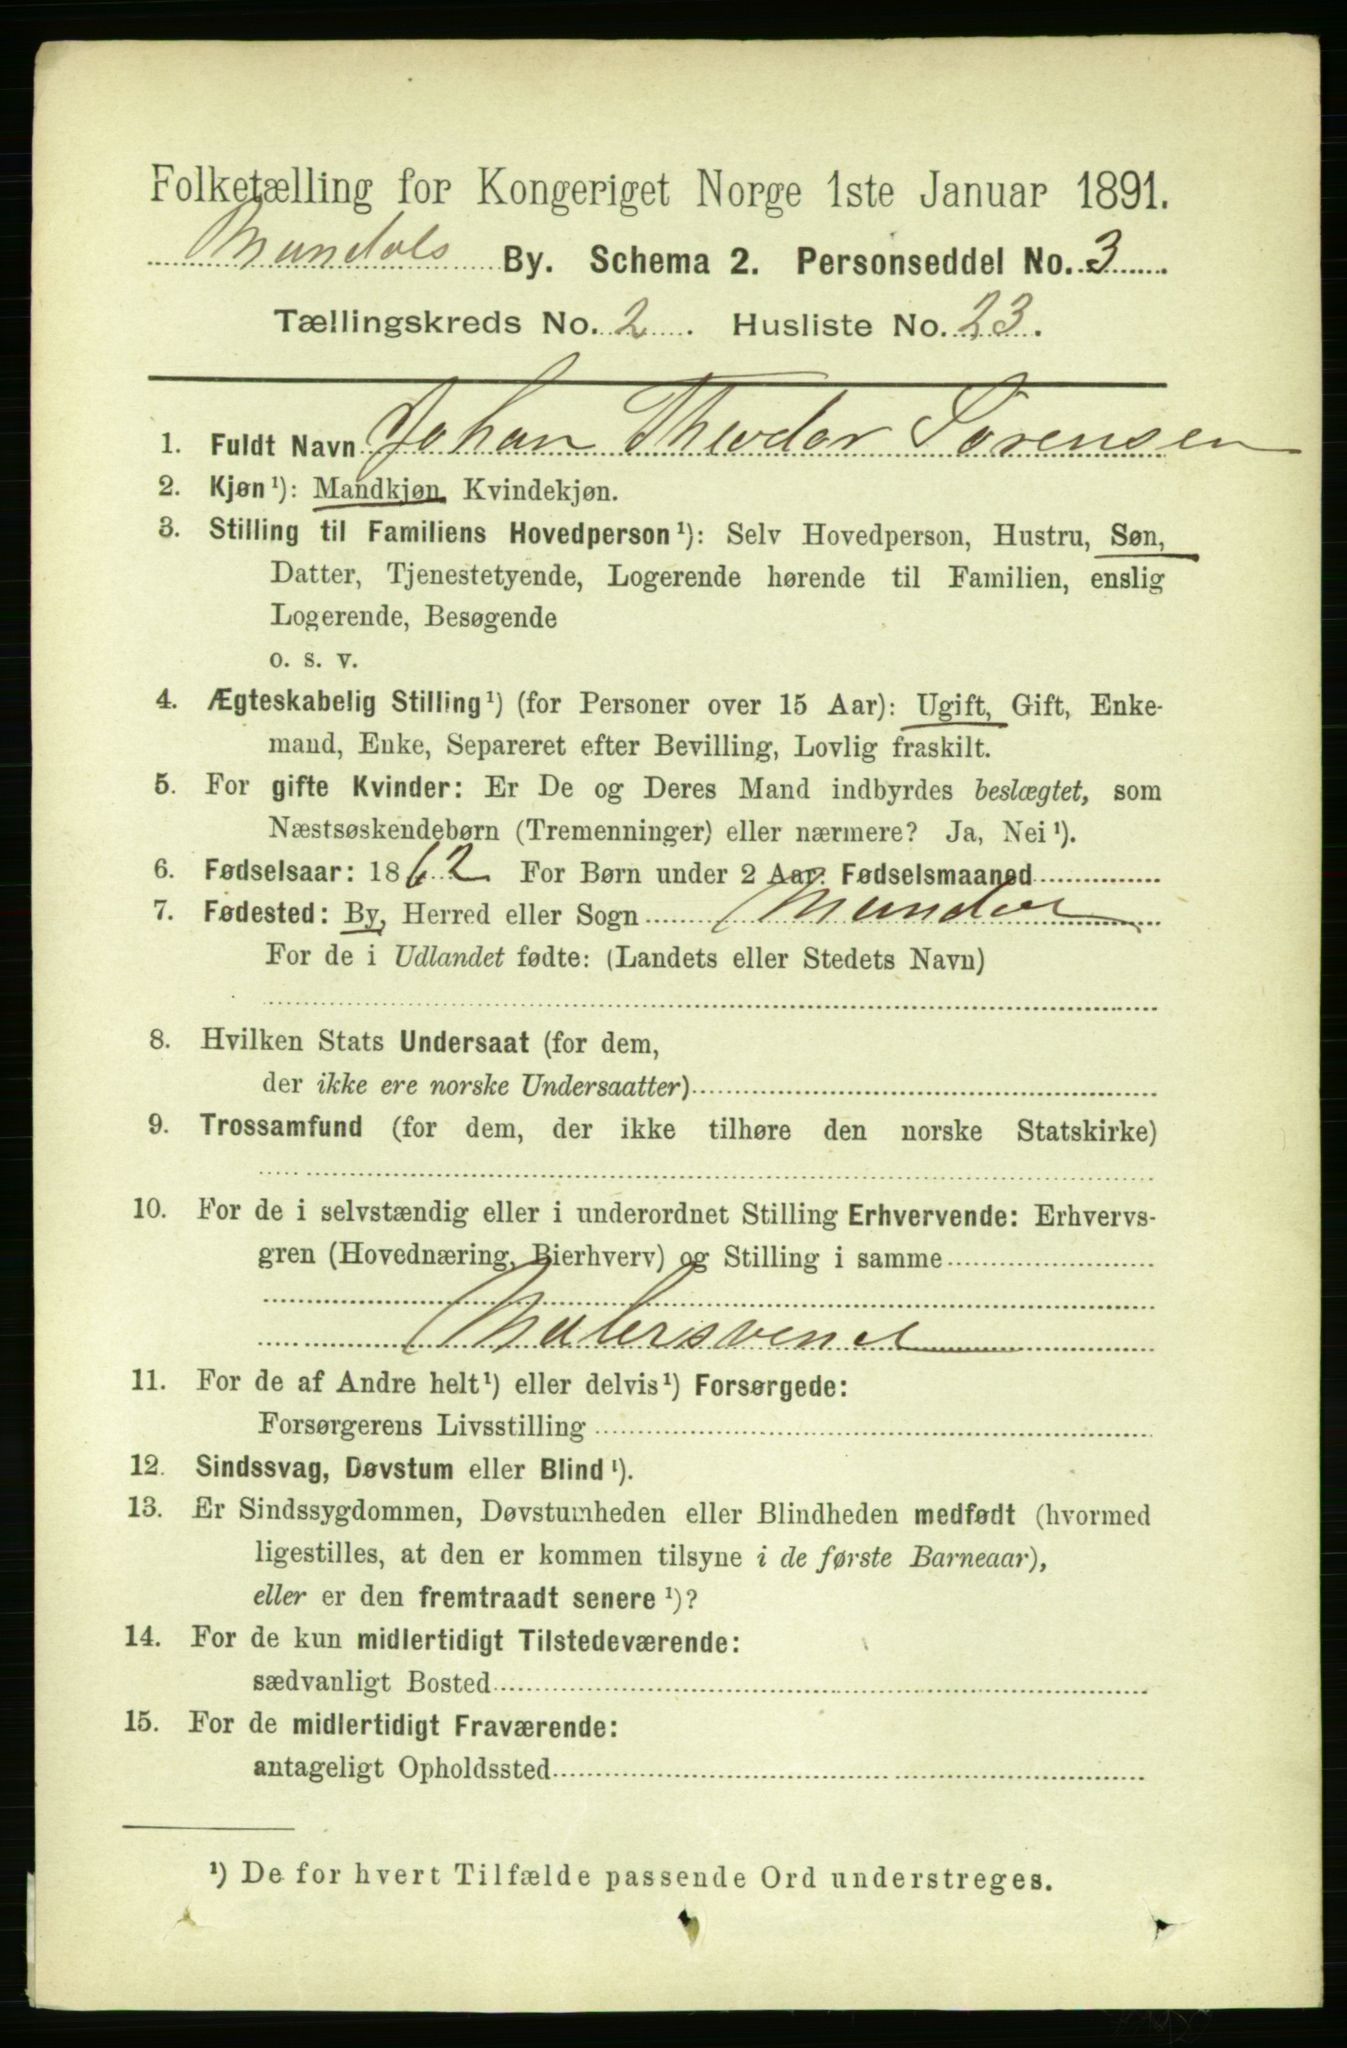 Folketælling for Kongeriget Norge 1ste Januar 1891.
Mandals By. Schema 2. Personseddel No. 3
Tællingskreds No. 2. Husliste No. 23.
1. Fuldt Navn Johan Theodor Sørensen
2. Kjøn¹): Mandkjøn, Kvindekjøn.
3. Stilling til Familiens Hovedperson¹): Selv Hovedperson, Hustru, Søn,
Datter, Tjenestetyende, Logerende hørende til Familien, enslig
Logerende, Besøgende
o. s. v.
4. Ægteskabelig Stilling¹) (for Personer over 15 Aar): Ugift, Gift, Enke-
mand, Enke, Separeret efter Bevilling, Lovlig fraskilt.
5. For gifte Kvinder: Er De og Deres Mand indbyrdes beslægtet, som
Næstsøskendebørn (Tremenninger) eller nærmere? Ja, Nei¹).
6. Fødselsaar: 1862 For Børn under 2 Aar: Fødselsmaaned
7. Fødested: By, Herred eller Sogn Mandal
For de i Udlandet fødte: (Landets eller Stedets Navn)
8. Hvilken Stats Undersaat (for dem,
der ikke ere norske Undersaatter)
9. Trossamfund (for dem, der ikke tilhøre den norske Statskirke)
10. For de i selvstændig eller i underordnet Stilling Erhvervende: Erhvervs-
gren (Hovednæring, Bierhverv) og Stilling i samme
Malersvend
11. For de af Andre helt¹) eller delvis¹) Forsørgede:
Forsørgerens Livsstilling
12. Sindssvag, Døvstum eller Blind¹).
13. Er Sindssygdommen, Døvstumheden eller Blindheden medfødt (hvormed
ligestilles, at den er kommen tilsyne i de første Barneaar),
eller er den fremtraadt senere¹)?
14. For de kun midlertidigt Tilstedeværende:
sædvanligt Bosted
15. For de midlertidigt Fraværende:
antageligt Opholdssted
¹) De for hvert Tilfælde passende Ord understreges.